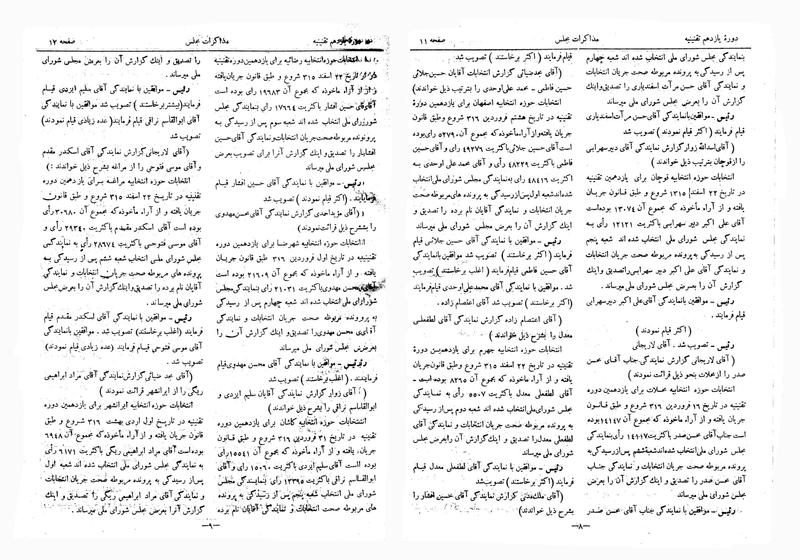 دورهٔ یازدهم تقنینیه مذاکرات مجلس صفحه ۱۱
بنمایندگی مجلس شورای ملی انتخاب شده اند شعبه چهارم
پس از رسیدگی به پرونده مربوطه صحت جریان انتخابات
و نمایندگی آقای حسن مرآت اسفندیاری را تصدیق و اینك
گزارش آن را بعرض مجلس شورای ملی میرساند
رئیس ـ موافقین با نمایندگی آقای حسن مرآت اسفندیاری
قیام فرمایند ( اکثر برخاستند ) تصویب شد
(آقای اسدالله زوار گزارش نمایندگی آقای دبیر سهرابی
را از قوچان بترتیب ذیل خواندند )
انتخابات حوزه انتخابیه قوچان برای یازدهمین تقنینیه
در تاریخ ۲۲ اسفند ۱۳۱۵ شروع و طبق قانون جریان
یافته و از آراء مأخوذه که مجموع آن ۱۳۰۷۴ بوده است
آقای علی اکبر دبیر سهرابی باکثریت ۱۲۱۲۱ رأی
بنمایندگی مجلس شورای ملی انتخاب شده اند شعبه پنجم
پس از رسیدگی به پرونده مربوطه صحت جریان انتخابات
و نمایندگی آقای علی اکبر دبیر سهرابی را تصدیق و اینك
گزارش آن را بعرض مجلس شورای ملی میرساند .
رئیس ـ موافقین با نمایندگی آقای علی اکبر دبیر سهرابی
قیام فرمایند .
( اکثر قیام نمودند )
رئیس ـ تصویب شد . آقای لاریجانی
( آقای لاریجانی گزارش نمایندگی جناب آقای محسن
صدر را از محلات بنحو ذیل قرائت نمودند )
انتخابات حوزه انتخابیه محلات برای یازدهمین دوره
تقنینیه در تاریخ ۱۶ فروردین ۳۱۶ شروع و طبق قانون
جریان یافته و از آراء مأخوذه که مجموع آن ۱۴۱۴۷ بوده
است جناب آقای محسن صدر باکثریت رأی بنمایندگی
مجلس شورای ملی انتخاب شده اند شعبه ششم پس از رسیدگی به
پرونده مربوطه صحت جریان انتخابات و نمایندگی جناب
آقای محسن صدر را تصدیق و اینك گزارش آن را بعرض
مجلس شورای ملی میرساند
رئیس ـ موافقین با نمایندگی جناب آقای محسن صدر
قیام فرمایند ( اکثر برخاستند ) تصویب شد
(آقای مجد ضیائی گزارش انتخابات آقایان حسین جلائی
حسین فاطمی ـ محمد علی اوحدی را بترتیب ذیل خواندند)
انتخابات حوزه انتخابیه اصفهان برای یازدهمین دورهٔ
تقنینیه در تاریخ هشتم فروردین ۳۱۶ شروع و طبق قانون
جریان یافته و از آراء مأخوذه که مجموع آن ۵۲۷۹۰ رأی بوده
است آقای حسین جلائی باکثریت ۴۹۲۷۹ رأی و آقای حسین
فاطمی باکثریت ۴۸۲۲۹ رأی و آقای محمد علی اوحدی به
اکثریت ۴۸۴۱۶ رأی به نمایندگی مجلس شورای ملی انتخاب
شده اند شعبه اول پس از رسیدگی به پرونده های مربوطه صحت
جریان انتخابات و نمایندگی آقایان نام برده را تصدیق و
اینك گزارش آن را بعرض مجلس شورای ملی میرساند
رئیس ـ موافقین با نمایندگی آقای حسین جلائی قیام
فرمایند (اکثر برخاستند ) تصویب شد موافقین با نمایندگی
آقای حسین فاطمی قیام فرمایند ( اغلب برخاستند ) تصویب
شد . موافقین با نمایندگی آقای محمد علی اوحدی قیام فرمایند
(اکثر برخاستند ) تصویب شد آقای اعتصام زاده .
(آقای اعتصام زاده گزارش نمایندگی آقای لطفعلی
معدل را بشرح ذیل خواندند )
انتخابات حوزه انتخابیه جهرم برای یازدهمین دوره
تقنینیه در تاریخ ۸ فروردین ۳۱۶ شروع و طبق قانون جریان
یافته و از آراء مأخوذه که مجموع آن ۸۲۹۵ بوده است ـ
آقای لطفعلی معدل باکثریت ۵۵۰۷ رأی به نمایندگی
مجلس شورای ملی انتخاب شده اند شعبه دوم پس از رسیدگی به
پرونده مربوطه صحت جریان انتخابات و نمایندگی آقای
لطفعلی معدل را تصدیق و اینك گزارش آن را بعرض مجلس
شورای ملی میرساند
رئیس ـ موافقین با نمایندگی آقای لطفعلی معدل قیام
فرمایند (اکثر برخاستند ) تصویب شد
(آقای ملك مدنی گزارش نمایندگی آقای حسین افشار را
بشرح ذیل خواندند)
ـ۸ـ
دوره یازدهم تقنینیه مذاکرات مجلس صفحه ۱۲
انتخابات حوزه انتخابیه رضائیه برای یازدهمین دوره تقنینیه
در تاریخ ۲۲ اسفند ۳۱۵ شروع و طبق قانون جریان یافته
و از آراء مأخوذه که مجموع آن ۱۹۶۸۳ رأی بوده است
آقای حسین افشار باکثریت ۱۷۶۶۴ رأی بنمایندگی مجلس
شورای ملی انتخاب شده اند شعبه سوم پس از رسیدگی به
پرونده مربوطه صحت جریان انتخابات و نمایندگی آقای حسین
افشار را تصدیق و اینك گزارش آنرا برای تصویب بعرض
مجلس شورای ملی میرساند
رئیس ـ موافقین با نمایندگی آقای حسین افشار قیام
فرمایند . ( اکثر قیام نمودند ) تصویب شد
(آقای مؤید احمدی گزارش نمایندگی آقای حسن مهدوی
را بشرح ذیل قرائت نمودند)
انتخابات حوزه انتخابیه شهرضا برای یازدهمین دوره
تقنینیه در تاریخ اول فروردین ۳۱۶ طبق قانون جریان
یافته و از آراء مأخوذه که مجموع آن ۲۱۶۰۹ بوده است
آقای حسن مهدوی باکثریت ۲۱۰۳۱ رأی بنمایندگی مجلس
شورای ملی انتخاب شده اند شعبه چهارم پس از رسیدگی
به پرونده مربوطه صحت جریان انتخابات و نمایندگی
آقای حسن مهدوی را تصدیق و اینك گزارش آن را
بعرض مجلس شورای ملی میرساند
رئیس ـ موافقین با نمایندگی آقای حسن مهدوی قیام
فرمایند . ( اغلب برخاستند) تصویب شد
( آقای زوار گزارش نمایندگی آقایان سلیم ایزدی و
ابوالقاسم نراقی را بشرح ذیل خواندند )
انتخابات حوزه انتخابیه کاشان برای یازدهمین دوره
تقنینیه در تاریخ ۲۱ فروردین ۳۱۶ شروع و طبق قانون
جریان یافته و از آراء مأخوذه که مجموع آن ۱۵۵۴۱ رأی
بوده است آقای سلیم ایزدی باکثریت ۱۵۰۹۰ رأی و آقای
ابوالقاسم نراقی باکثریت ۱۳۳۹۵ رأی بنمایندگی مجلس
شورای ملی انتخاب شده اند شعبه پنجم پس از رسیدگی به پرونده
های مربوطه صحت انتخابات و نمایندگی آقایان نام برده
را تصدیق و اینك گزارش آن را بعرض مجلس شورای
ملی میرساند .
رئیس ـ موافقین با نمایندگی آقای سلیم ایزدی قیام
فرمایند (بیشتر برخاستند ) تصویب شد موافقین با نمایندگی
آقای ابوالقاسم نراقی قیام فرمایند ( عده زیادی قیام نمودند)
تصویب شد
(آقای لاریجانی گزارش نمایندگی آقای اسکندر مقدم
و آقای موسی فتوحی را از مراغه بشرح ذیل خواندند : )
انتخابات حوزه انتخابیه مراغه برای یازدهمین دوره
تقنینیه در تاریخ ۲۲ اسفند ۳۱۵ شروع و طبق قانون
جریان یافته و از آراء مأخوذه که مجموع آن ۳۰۶۸۰ رأی
بوده است آقای اسکندر مقدم باکثریت ۲۹۳۴۰ رأی و
آقای موسی فتوحی باکثریت ۲۸۶۷۴ رأی به نمایندگی
مجلس شورای ملی انتخاب شده اند شعبه ششم پس از رسیدگی به
پرونده های مربوطه صحت جریان انتخابات و نمایندگی
آقایان نام برده را تصدیق و اینك گزارش آن را بعرض مجلس
شورای ملی میرساند .
رئیس ـ موافقین با نمایندگی آقای اسکندر مقدم قیام
فرمایند (اغلب برخاستند) تصویب شد . موافقین با نمایندگی
آقای موسی فتوحی قیام فرمایند (عده زیادی قیام نمودند)
تصویب شد .
(آقای مجد ضیائی گزارش نمایندگی آقای مراد ابراهیمی
ریگی را از ایرانشهر قرائت نمودند )
انتخابات حوزه انتخابیه ایرانشهر برای یازدهمین دوره
تقنینیه در تاریخ اول اردی بهشت ۳۱۶ شروع و طبق
قانون جریان یافته و از آراء مأخوذه که مجموع آن ۶۹۴۸
بوده است آقای مراد ابراهیمی ریگی باکثریت ۶۱۷۱ رأی
به نمایندگی مجلس شورای ملی انتخاب شده اند شعبه اول
پس از رسیدگی به پرونده مربوطه صحت جریان انتخابات
و نمایندگی آقای مراد ابراهیمی ریگی را تصدیق و اینك
گزارش آنرا بعرض مجلس شورای ملی میرساند .
ـ۹ـ